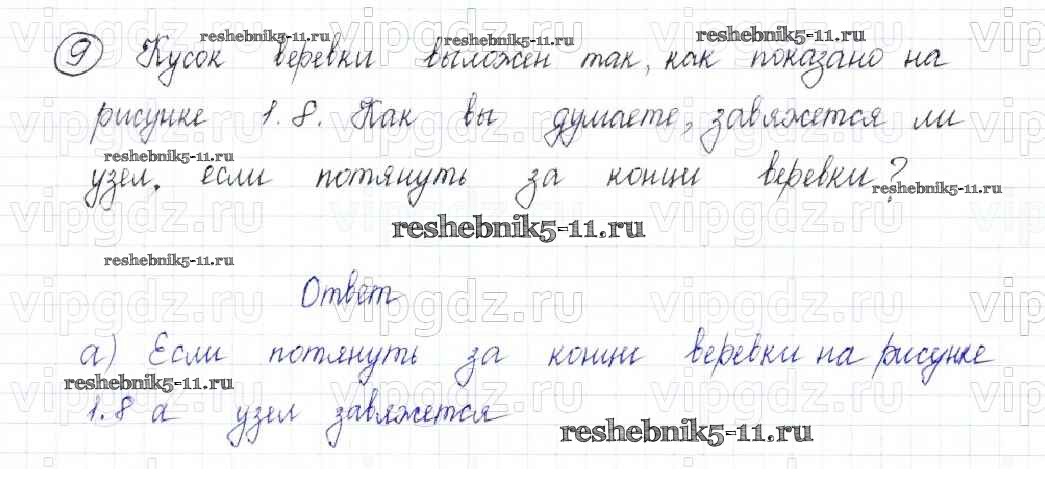 9 Кусок веревки выложен так, как показано на
рисунке 1.8. Как вы думаете, завяжется ли
узел, если потянуть за концы веревки?
Ответ
а) Если потянуть за концы веревки на рисунке
1.8 а узел завяжется
reshebnik5-11.ru
reshebnik5-11.ru
reshebnik5-11.ru
reshebnik5-11.ru
reshebnik5-11.ru
reshebnik5-11.ru
reshebnik5-11.ru
reshebnik5-11.ru
reshebnik5-11.ru
vipgdz.ru